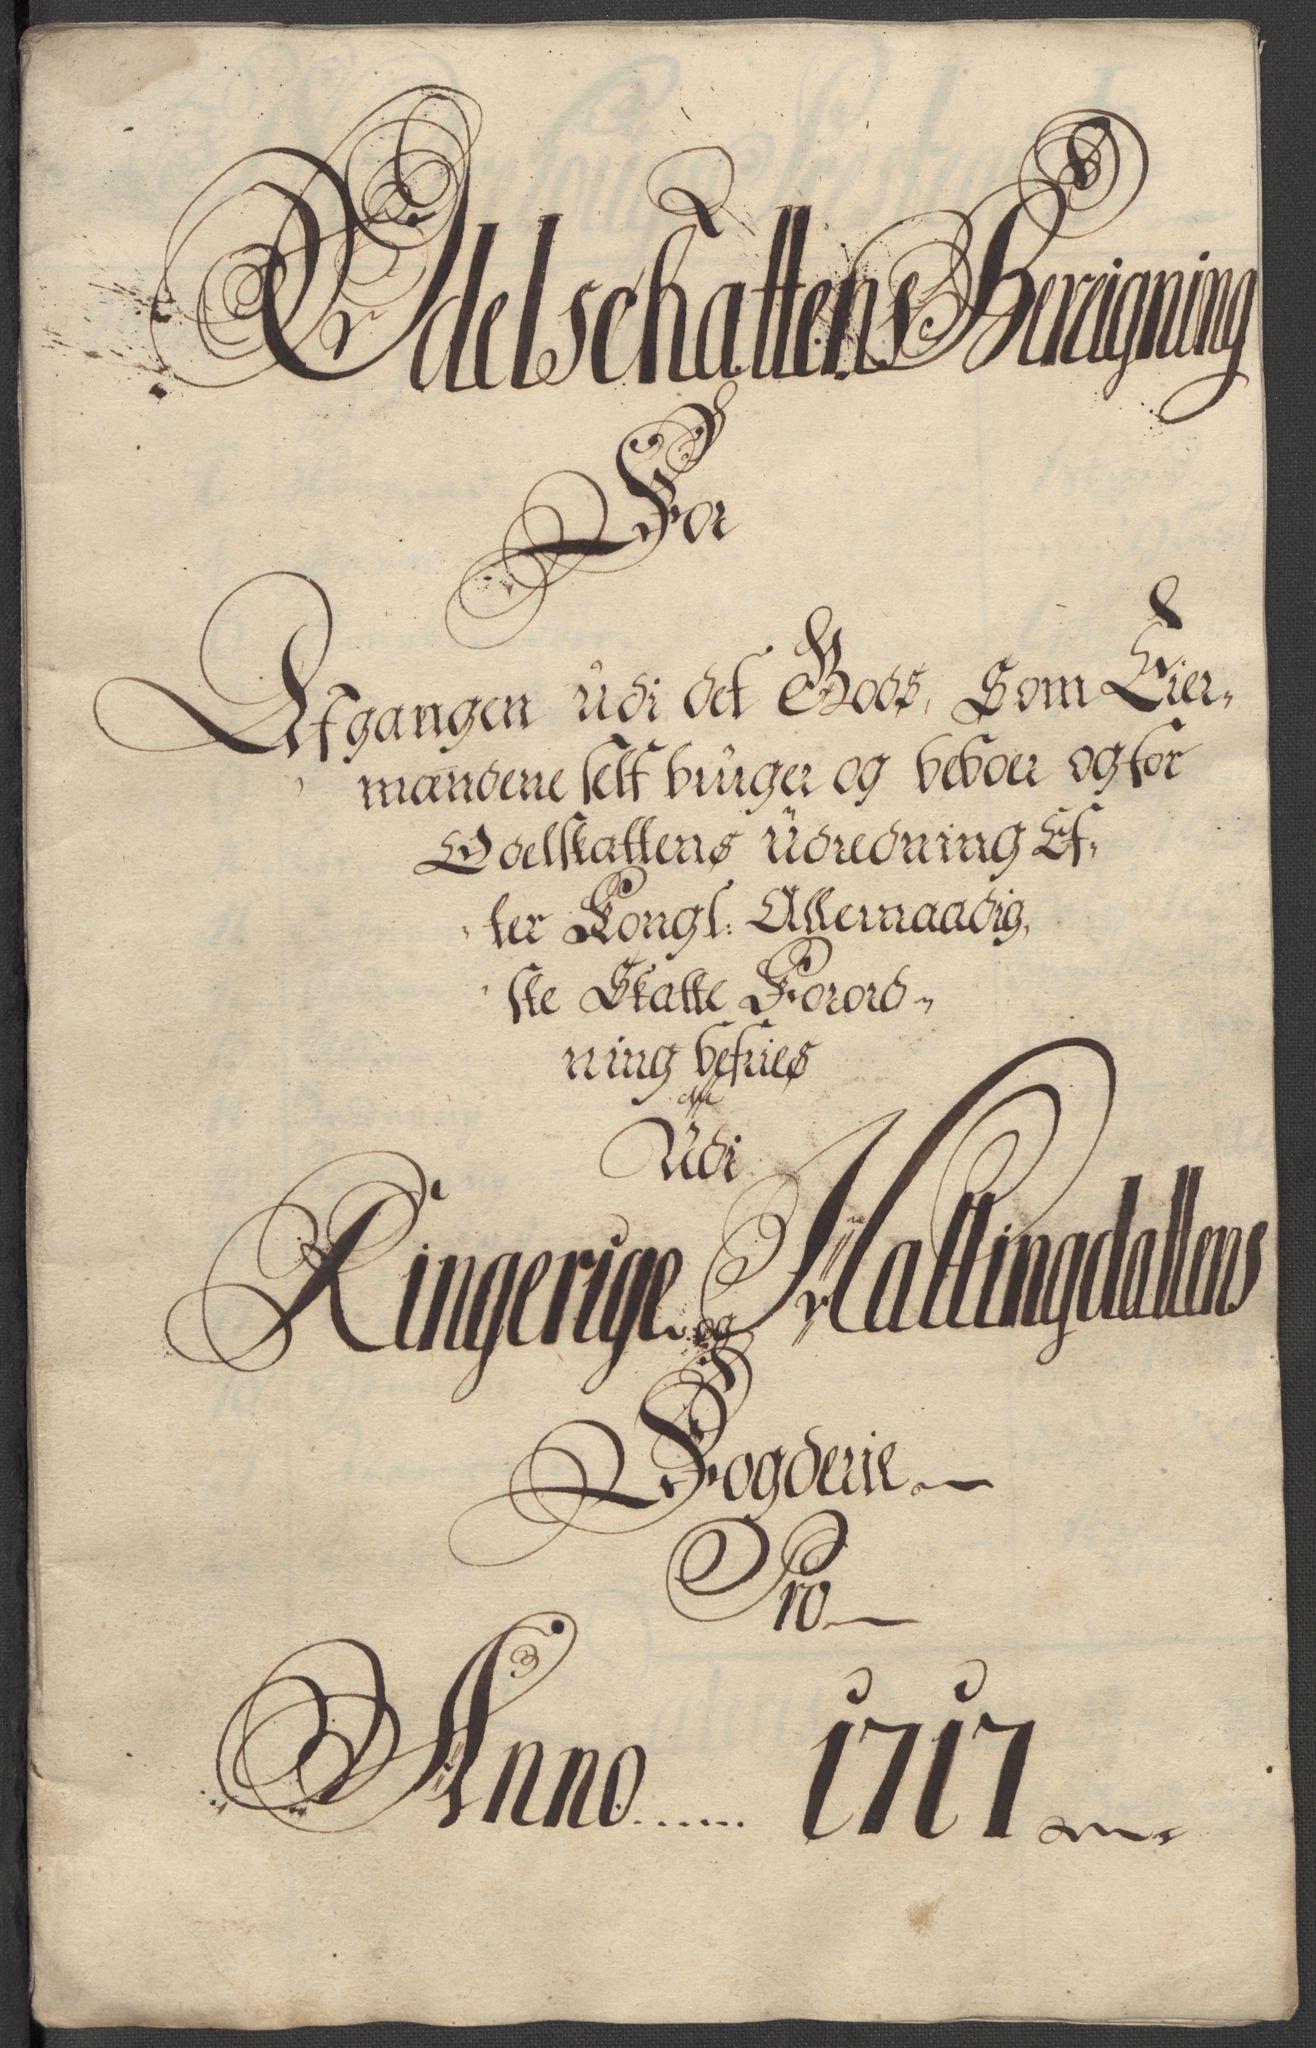 Odelschattens Bereigning
For
Afgangen udi det Gods, Som Eier-
mændene self bruger og beboer og for
Odelskattens Üdredning Ef-
ter Kongl: Allernaadig,
ste Skatte Forord-
ning befries
Udi
Ringerige og Hallingdallens
Fogderie
Pro
Anno ..... 1717